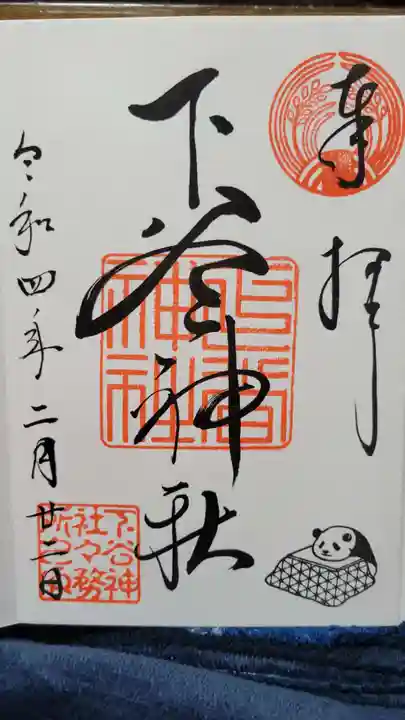 奉拝
下谷神社
令和四年二月廿二日
下谷神
社々務
所之印